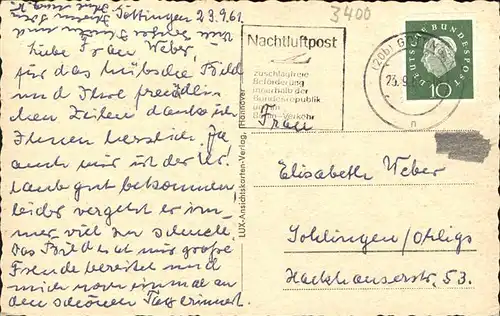 3400
Göttingen 23.9.61.
Liebe Frau Weber,
für das hübsche Bild
und Ihre freundli-
chen Zeilen danke ich
Ihnen herzlich. Ja,
auch mir ist der Ur-
laub gut bekommen
leider vergeht er im-
mer viel zu schnell.
Das Bild hat mir große
Freude bereitet und
mich noch einmal an
den schönen Tag erinnert.
LUX-Ansichtskarten-Verlag, Hannover
Nachtluftpost
zuschlagfreie
Beförderung
innerhalb der
Bundesrepublik
und im
Berlin-Verkehr
(20b)
23.9.
n
DEUTSCHE BUNDESPOST
10
Frau
Elisabeth Weber
Sohlingen/Ohligs
Hackhauserstr. 53.